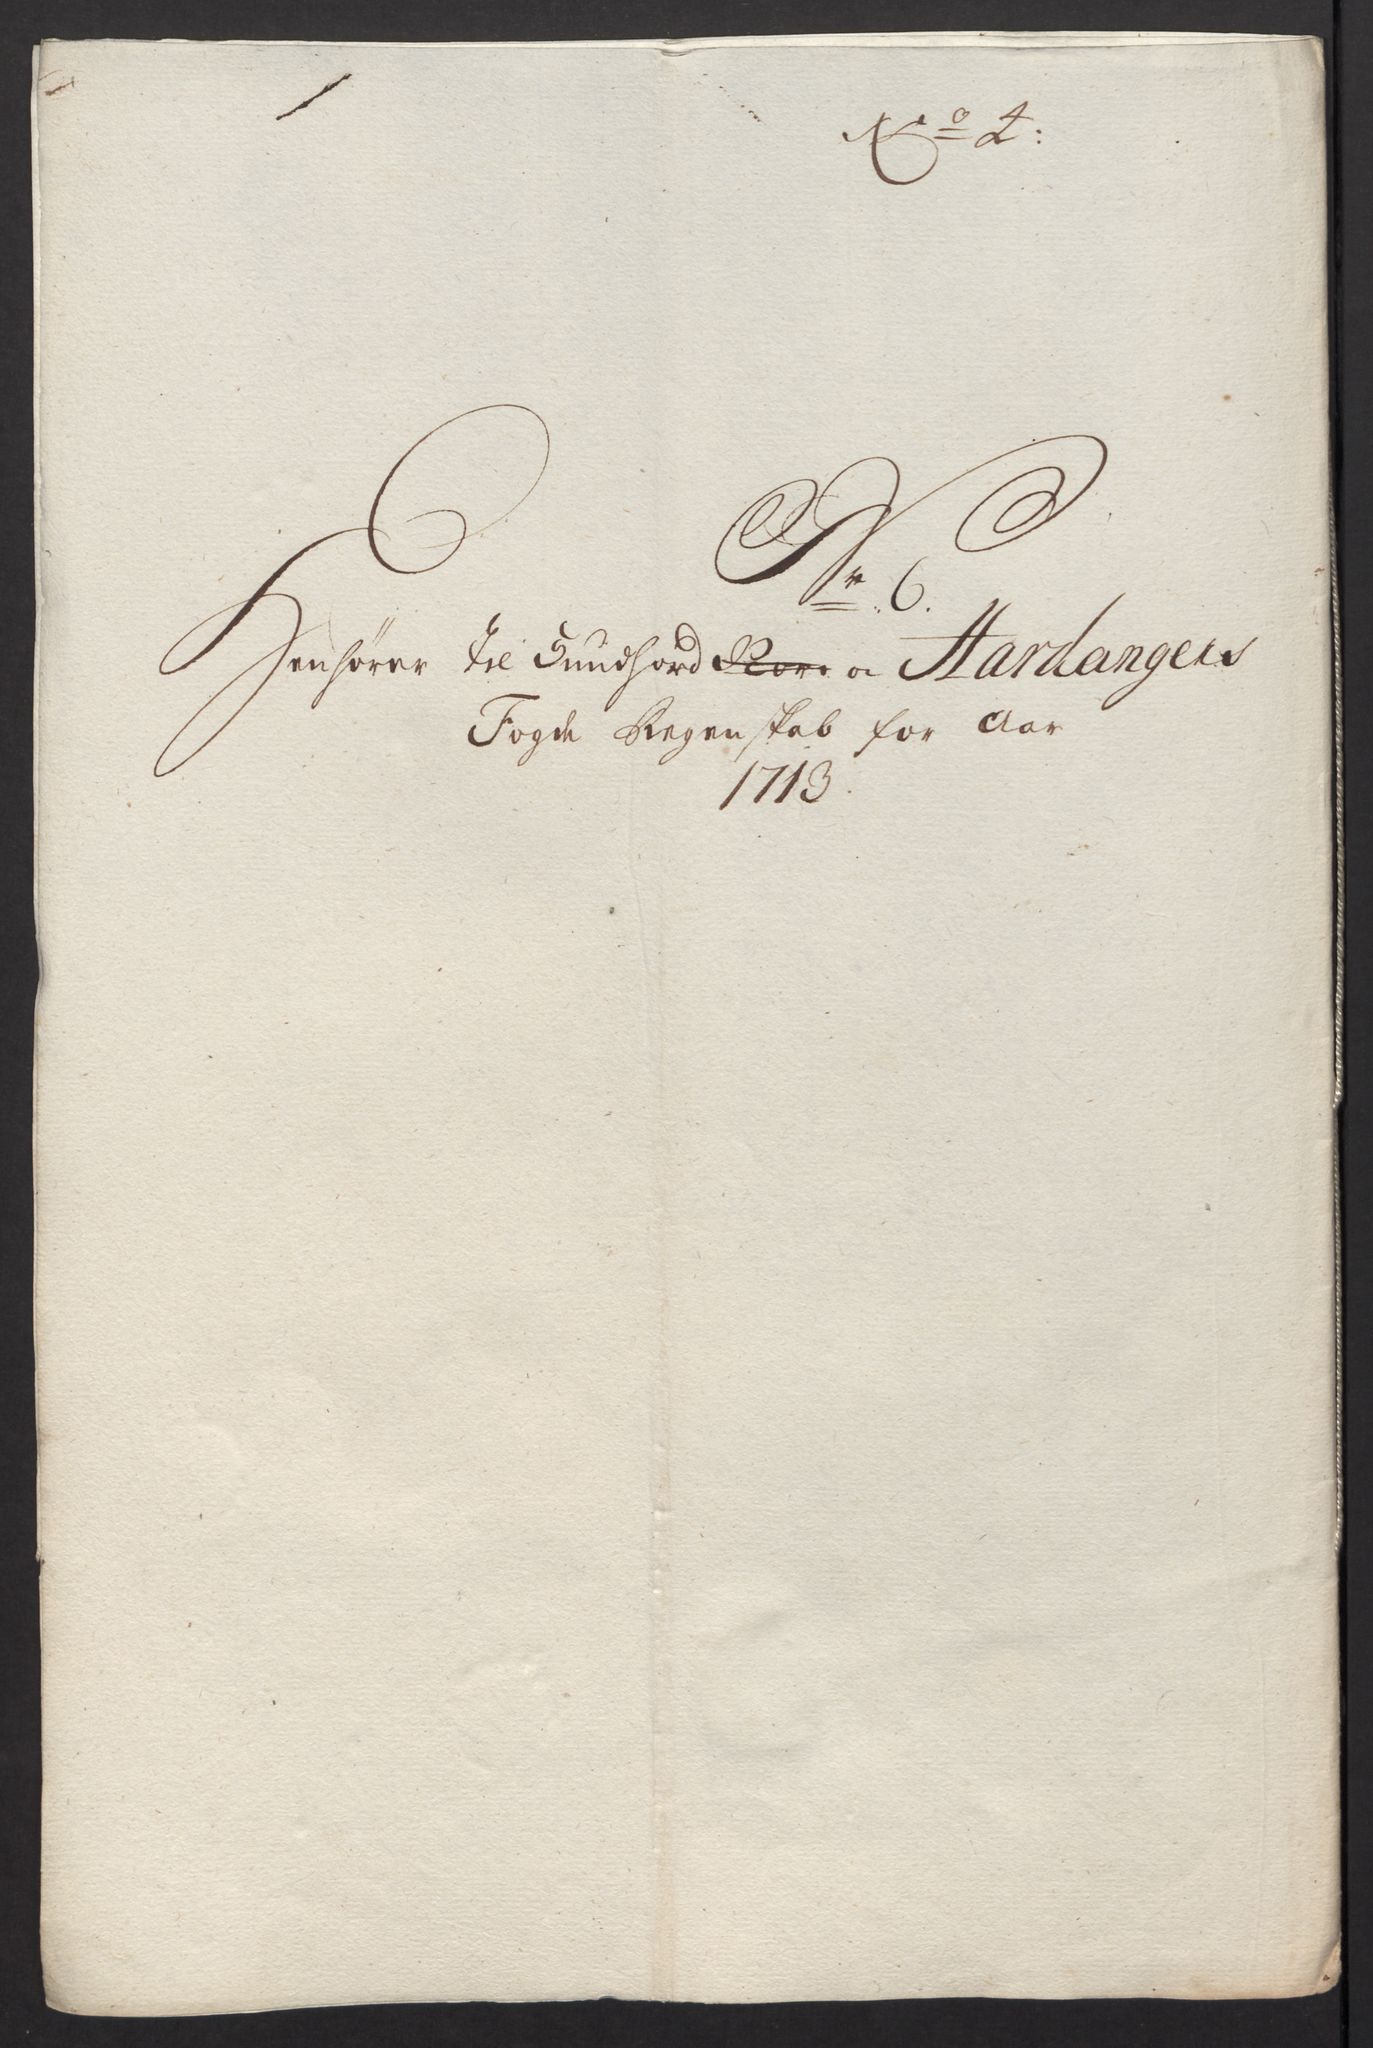 No 2:
Nr. 6.
Henhører til Sundhord a Hardangers
Fogde Regenskab for Aar
1713.